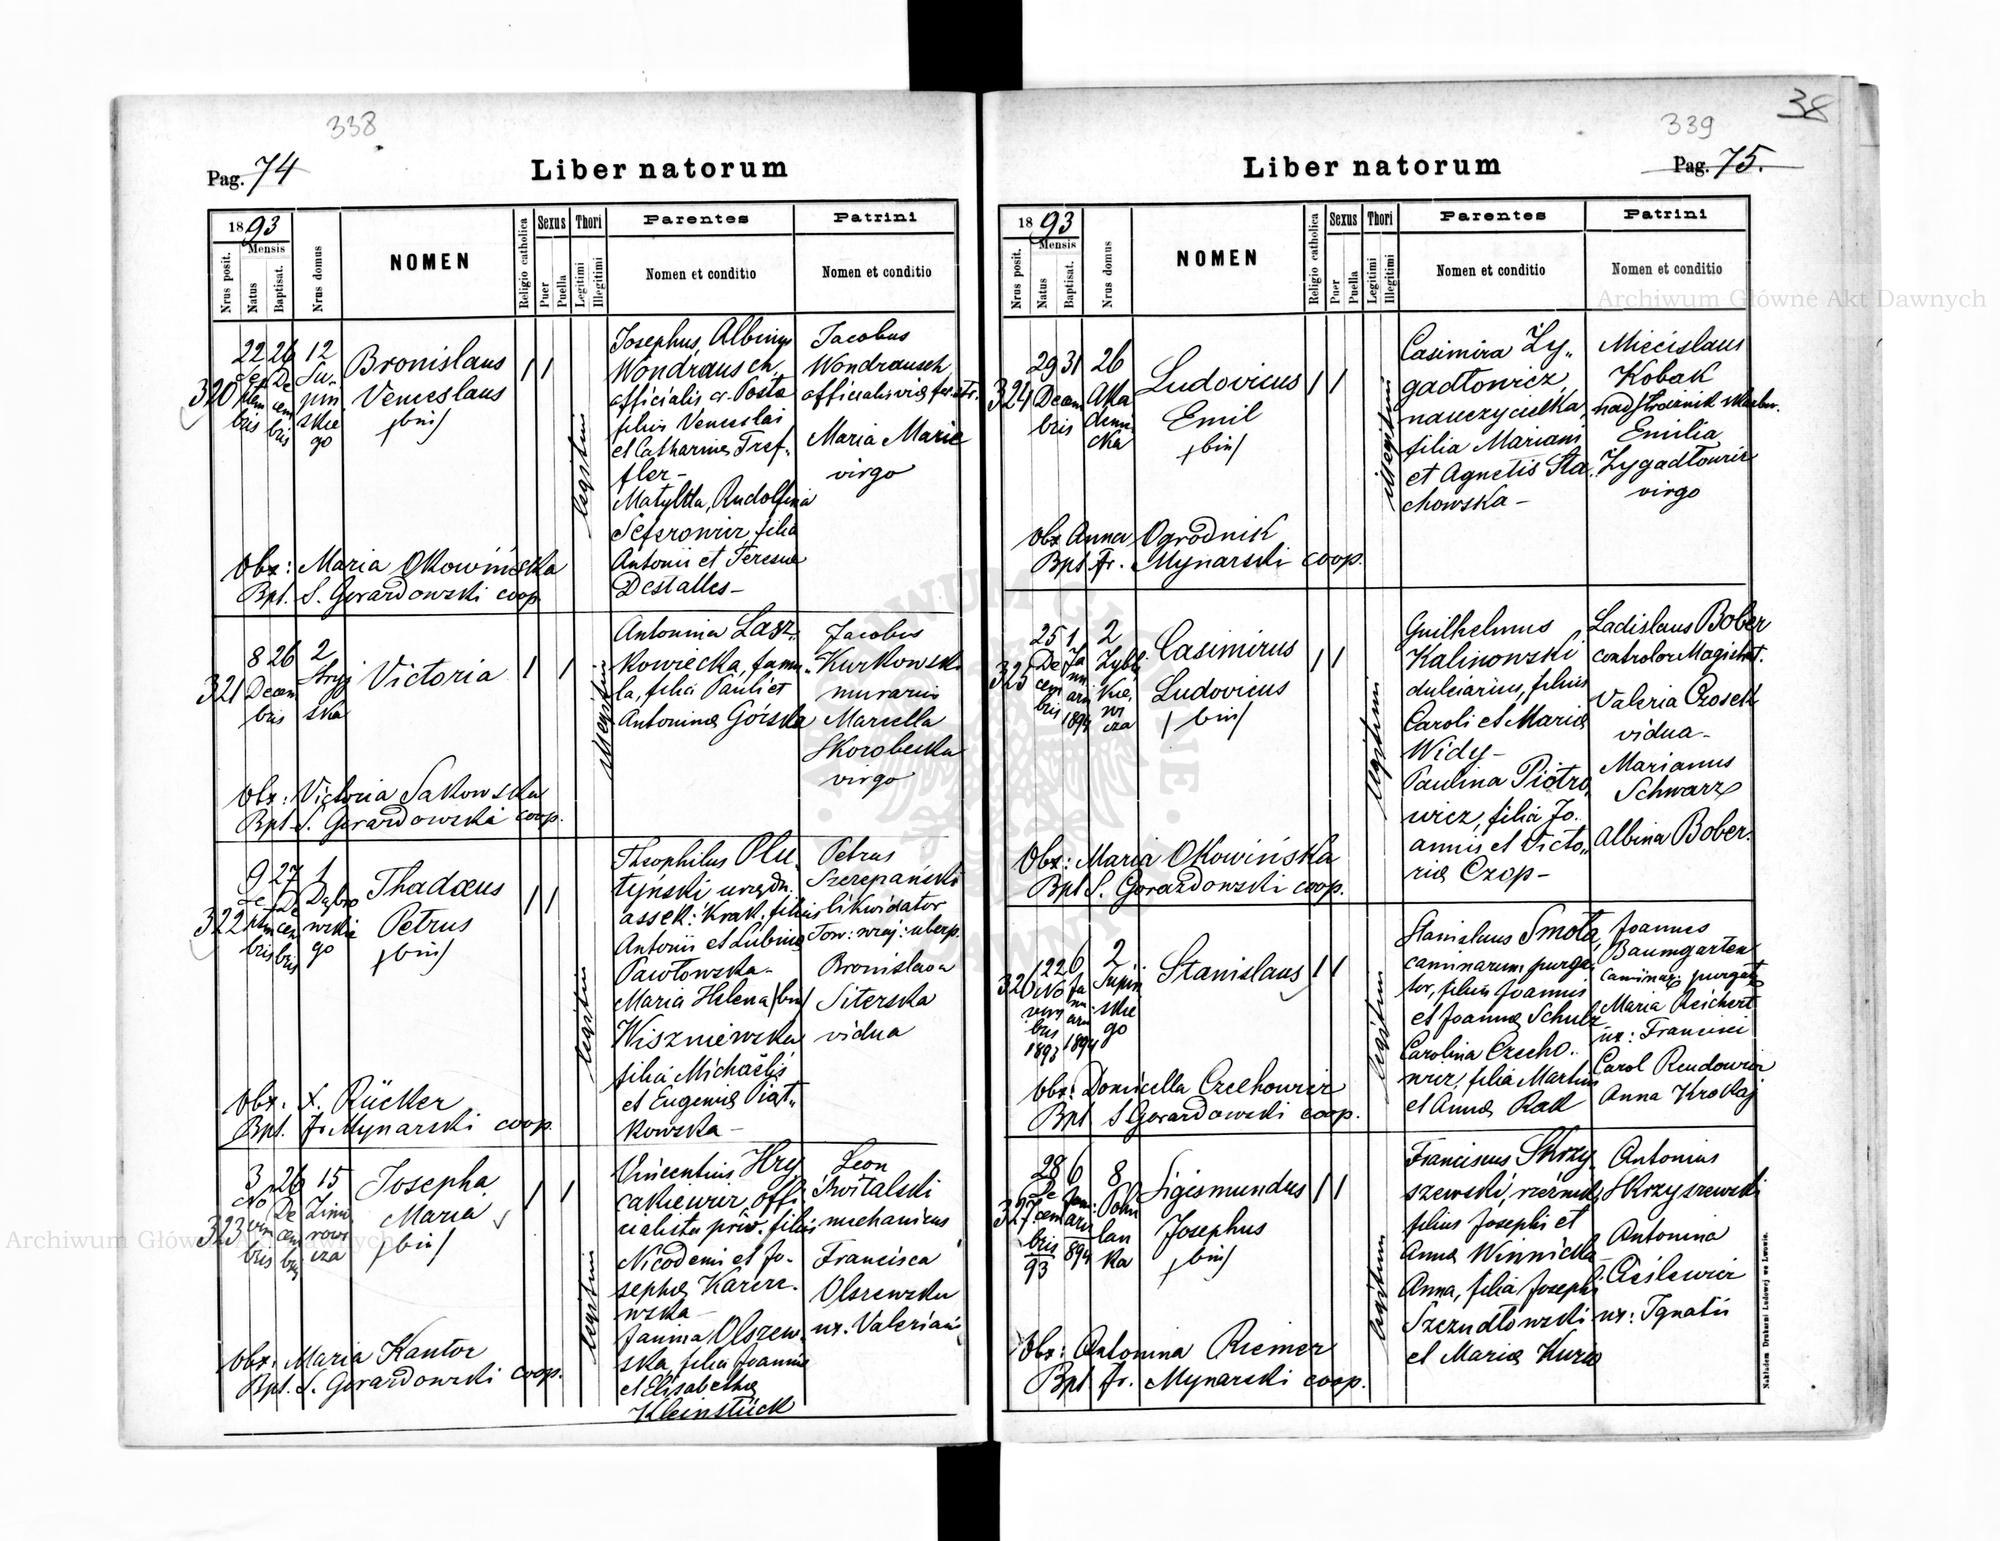 338
Pag. 74
Liber natorum
1893
Mensis
Nrus posit.
Natus
Baptisat.
Nrus domus
NOMEN
Religio catholica
Sexus
Puer
Puella
Thori
Legitimi
Illegitimi
Parentes
Nomen et conditio
Patrini
Nomen et conditio
320
22 26 12
Bronislaus
Venceslaus
(bin)
legitimi
Josephus Albinus
Wondrausch,
officialis cr. Posta
filius Venceslai
et Catharinæ Tref-
fler-
Matylda, Rudolfina
Seferowicz, filia
Antonii et Teresiae
Destalles-
Jacobus
Wondrausch,
Maria Marie
virgo
Obx: Maria Okowińska
Bpt. S. Gorazdowski coop.
321
8 26 2
Decem
bris
Stryj
ska
Victoria
illegitimi
Antonina Lasz„
kowiecka, famu„
la, filia Pauli et
Antoninæ Górska
Jacobus
Kurkowski
murarius
Marcella
Skorobecka
virgo
Obx: Victoria Sakowska
Bpt S. Gorazdowski coop.
322
9 27 1
Dąbro
wskie
go
Thadæus
Petrus
(bin)
legitimi
Theophilus Plu„
tyński urzędn.
assek: Krak. filius
Antonii et Lubinæ
Pawłowska-
Maria Helena (bin)
Wiszniewska
filia Michaëlis
et Eugeniæ Piąt„
kowska-
Petrus
Szczepański
likwidator
Tow: wzaj: ubezp.
Bronislava
Siterska
vidua
Obx. X. Rücker
Bpt. Fr. Mynarski coop.
323
3 26 15
No
vem
bris
De
cem
bris
Zimo
rowi
cza
Josepha
Maria
(bin)
legitimi
Vincentius Hry
cakiewicz, offi
cialista pryw. filius
Nicodemi et Jo-
sephæ Karcze-
wska-
Janina Olszew„
ska, filia Joannis
et Elisabethæ
Kleinstück
Leon
Świtalski
mechanicus
Francisca
Olszewska
ux. Valeriani
Obx: Maria Kantor
Bpt. S. Gorazdowski coop.
38
339
Liber natorum
Pag. 75.
1893
Mensis
Nrus posit.
Natus
Baptisat.
Nrus domus
NOMEN
Religio catholica
Sexus
Puer
Puella
Thori
Legitimi
Illegitimi
Parentes
Nomen et conditio
Patrini
Nomen et conditio
324
29 31 26
Decem
bris
Aka
demi
cka
Ludovicus
Emil
(bin)
illegitimi
Casimira Zy„
gadłowicz,
nauczycielka,
filia Mariani
et Agnetis Sta
chowska-
Miecislaus
Kobak
Emilia
Zygadłowicz
virgo
Obx Anna Ogrodnik
Bpt Fr. Mynarski coop.
325
25 1 2
De
cem
bris
Ja
nu
arii
1894
Zybli
kie
wi
cza
Casimirus
Ludovicus
(bin)
legitimi
Guilhelmus
Kalinowski
dulciarius, filius
Caroli et Mariæ
Widy-
Paulina Piotro„
wicz, filia Jo„
annis et Victo„
riæ Czop-
Ladislaus Bober
controlor Magistrat.
Valeria Czosek
vidua-
Marianus
Schwarz
Albina Bober.
Obx: Maria Okowińska
Bpt S. Gorazdowski coop.
326
12 26 2
No
vem
bris
1893
Ja
nu
arii
1894
Supiń
skie
go
Stanislaus
legitimi
Stanislaus Smoła,
caminarum purga„
tor, filius Joannis
et Joannæ Schulz
Carolina Czecho„
wicz, filia Martini
et Annæ Rak
Joannes
Baumgarten
Maria Reichert
ux: Francisci
Carol Rendowicz
Anna Krokaj
Obx: Domicella Czechowicz
Bpt S Gorazdowski coop.
327
28 6 8
De
cem
bris
93
Jan.
arii
894
Pohu
lan
ka
Sigismundus
Josephus
(bin)
legitimi
Franciscus Skrzy„
szewski, rzeźnik,
filius Josephi et
Annæ Winnicka
Anna, filia Josephi
Szczudłowski
et Mariæ Kurie
Antonius
Skrzyszewski
Antonina
Cieślewicz
ux: Ignatii
Obx: Antonina Riemer
Bpt Fr. Mynarski coop.
Nakładem Drukarni Ludowej we Lwowie.
Archiwum Główne Akt Dawnych
Archiwum Główne Akt Dawnych